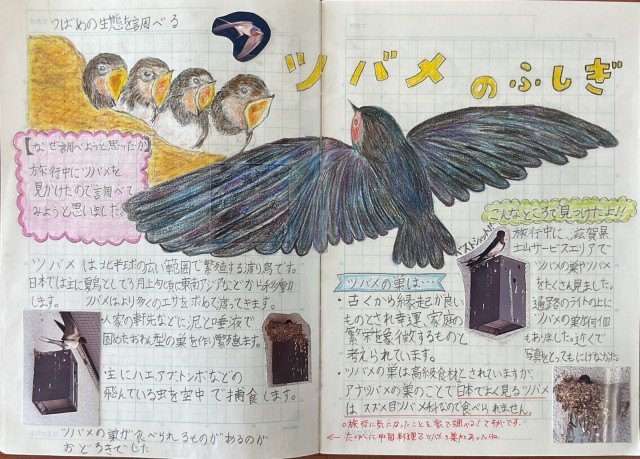 つばめの生態を調べる
ツバメのふしぎ
【なぜ調べようと思ったか】
旅行中にツバメを
見かけたので調べて
みようと思いました。
ツバメは北半球の広い範囲で繁殖する渡り鳥です。
日本では主に夏鳥として3月上旬頃に東南アジアなどから移動
します。ツバメはより多くのエサを求めて渡ってきます。
・人家の軒先などに泥と唾液で
固めたおわん型の巣を作り繁殖します。
・主にハエ、アブ、トンボなどの
飛んでいる虫を空中で捕食します。
ツバメの巣が食べられるものがあるのが
おどろきでした
こんなところで見つけたよ!!
ベストショット!
旅行中に、滋賀県
土山サービスエリアで
ツバメの巣やツバメ
をたくさん見ました。
通路のライトの上に
ツバメの巣が何個
もありました。近くで
写真をとってもにげなかった
ツバメの巣は…
・古くから縁起が良い
ものとされ幸運、家庭の
繁栄を象徴するものと
考えられています。
・ツバメの巣は高級食材とされていますが
アナツバメの巣のことで日本でよく見るツバメ
はスズメ目ツバメ科なので食べられません。
旅行で気になったことを家で調べる!ですね。
← たしかに中国料理でツバメの巣があったね。